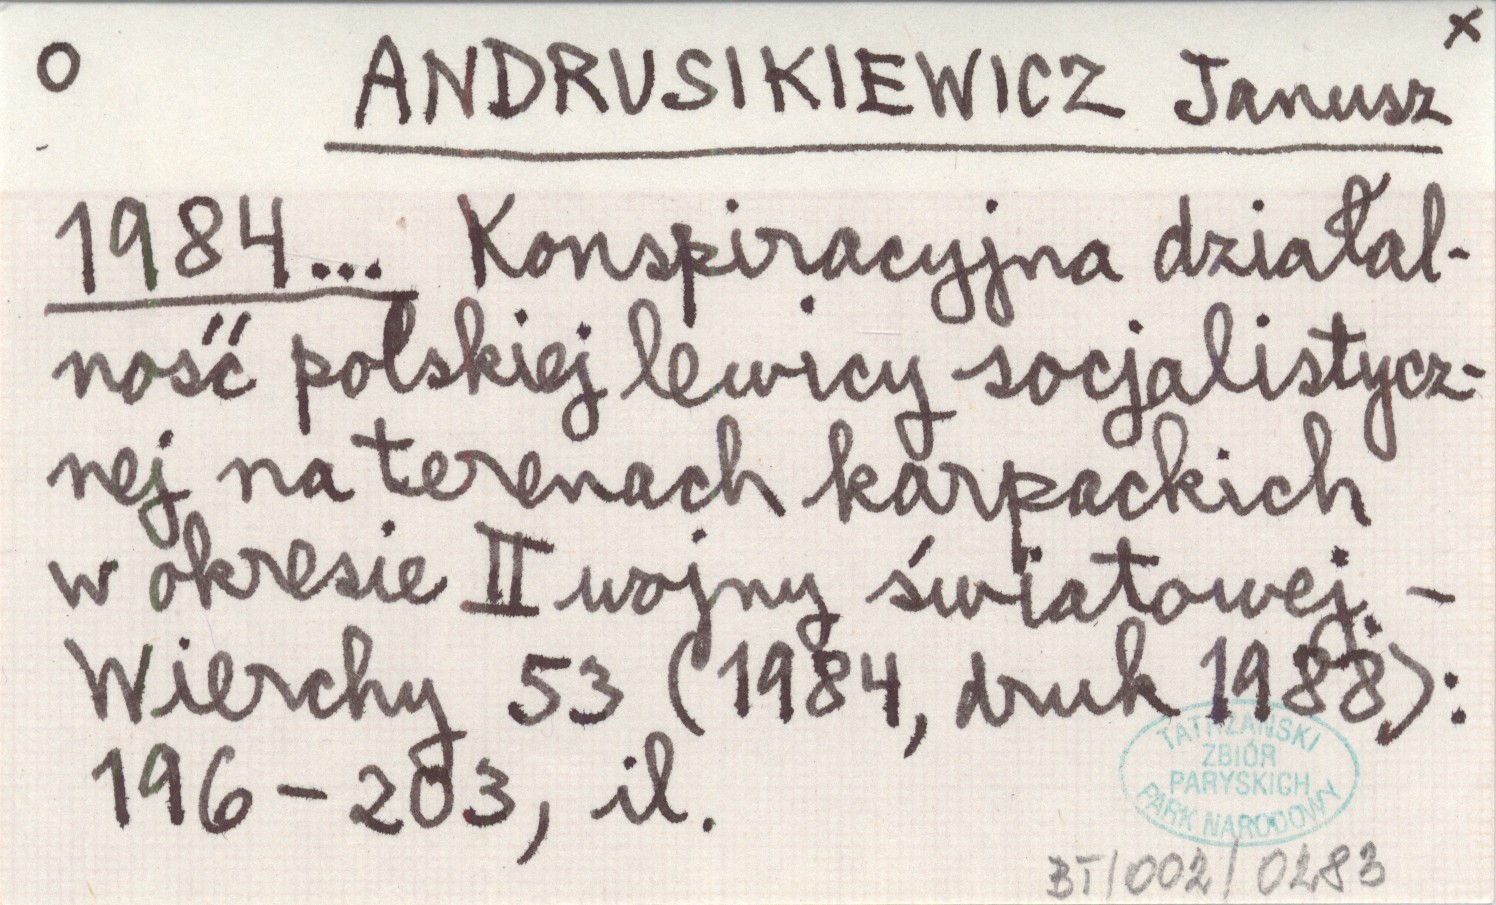 O ANDRUSIKIEWICZ Janusz x
1984... Konspiracyjna działal-
ność polskiej lewicy socjalistycz-
nej na terenach karpackich
w okresie II wojny światowej. -
Wierchy 53 (1984, druk 1988):
196-203, il.
TATRZAŃSKI
ZBIÓR
PARYSKICH
PARK NARODOWY
BT/002/0283